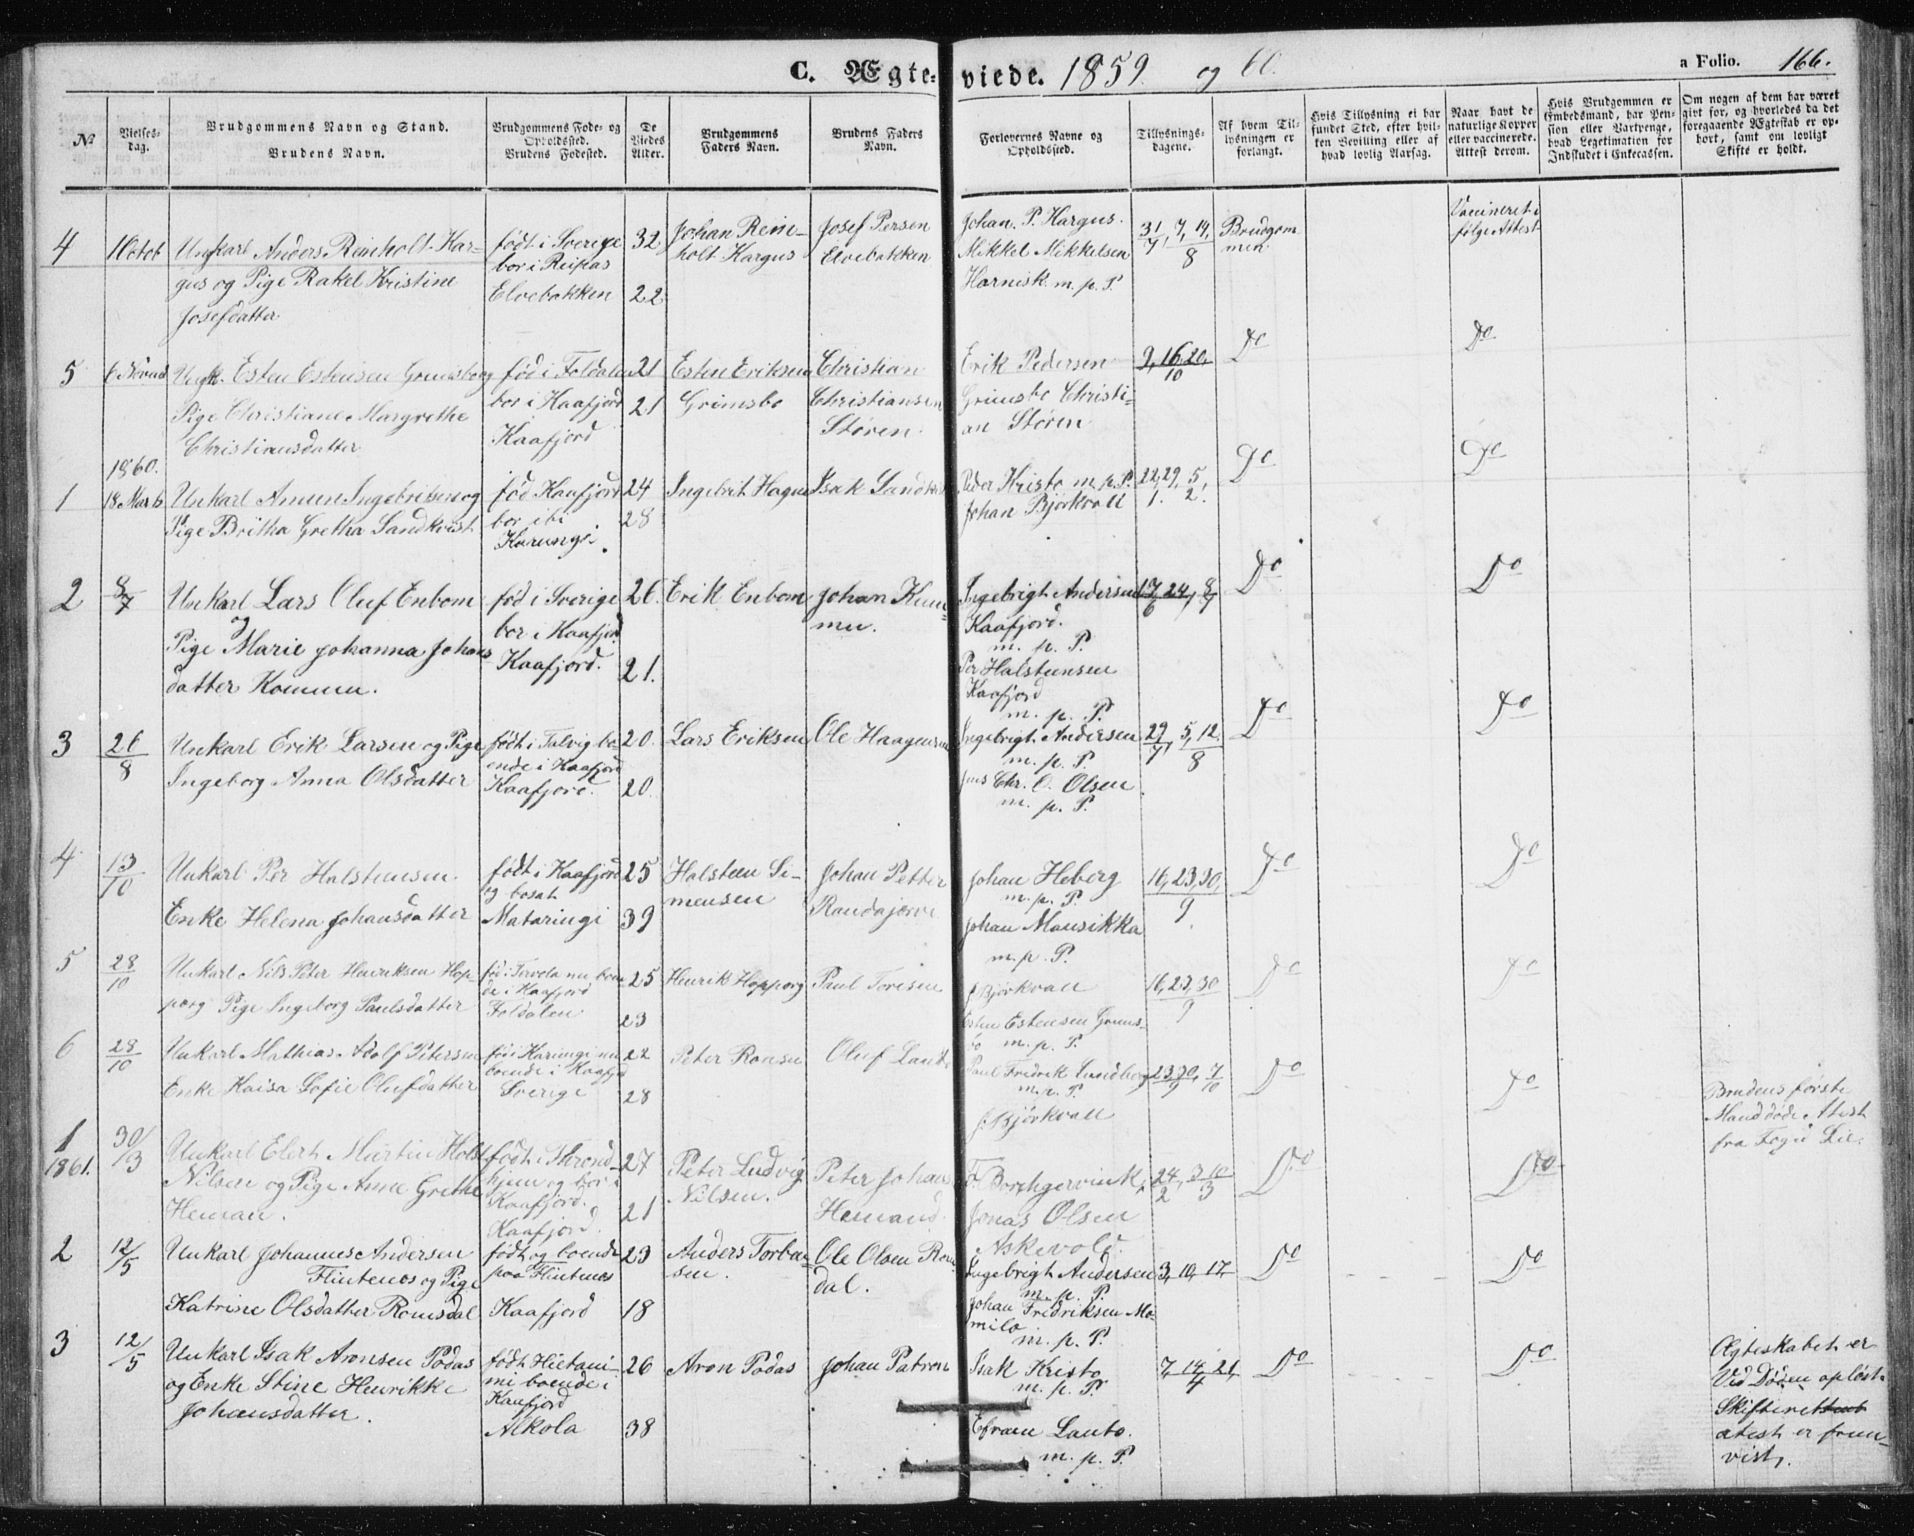 C. Ægteviede. 1859. og 60.
a Folio. 166.
№
Vielsesdag.
Brudgommens Navn og Stand.
Brudens Navn.
Brudgommens Føde- og
Opholdssted.
Brudens Fødested.
De
Viedes
Alder.
Brudgommens
Faders Navn.
Brudens Faders
Navn.
Forlovernes Navne og
Opholdssted.
Tillysnings-
dagene.
Af hvem Til-
lysningen er
forlangt.
Hvis Tillysning ei har
fundet Sted, efter hvil-
ken Bevilling eller af
hvad lovlig Aarsag.
Naar havt de
naturlige Kopper
eller vaccinerede.
Attest derom.
Hvis Brudgommen er
Embedsmand, har Pen-
sion eller Vartpenge,
hvad Legetimation for
Indskudet i Enkecassen.
Om nogen af dem har været
givt før, og hvorledes da det
foregaaende Ægteskab er op-
hørt, samt om lovligt
Skifte er holdt.
4
1 Octob
Ungkarl Anders Reinholt Har-
gus og Pige Rakel Kristine
Josefdatter
født i Sverige
bor i Reipas
Elvebakken
32
22
Johan Rein-
holt Hargus
Josef Persen
Elvebakken
Johan. P. Hargus.
Mikkel Mikkelsen
Harnisk m. p. P.
31/7, 7, 14,/8
Brudgom
men.
Vaccineret i
følge Attest
5
6 Novmb
Ungk. Esten Estensen Grimsbo og
Pige Christiane Margrethe
Christiansdatter
fød i Foldalen
bor i Kaafjord
Kaafjord
21
21
Esten Eriksen
Grimsbo
Christian
Christiansen
Støren
Erik Pedersen
Grimsbo Christi-
an Støren
9, 16, 20,/10
Do
Do
1860.
1
18 Marts
Unkarl Amun Ingebritsen og
Pige Britha Gretha Sandkvist
fød Kaafjord
bor ibi
Karungi.
24
28
Ingebrit Hagen
Isak Sandkvist
Peder Kristo m. p. P.
Johan Björkvall
22, 29, 5,
1. 2.
Do
Do
2
8/7
Unkarl Lars Oluf Enbom
og
Pige Marie Johanna Johans
datter Kommu.
fød i Sverige
bor i Kaafjord
Kaafjord.
26.
21.
Erik Enbom
Johan Kum-
mu.
Ingebrigt Andersen
Kaafjord.
m. p. P.
Per Halstensen
Kaafjord
m. p. P.
17, 24,/6, 8/7
Do
Do
3
26/8
Unkarl Erik Larsen og Pige
Ingeborg Anna Olsdatter
født i Talvig bo-
ende i Kaafjord
Kaafjord.
20.
20.
Lars Eriksen
Ole Haagensen
Ingebrigt Andersen
m. p. P.
Jens Chr. O. Olsen
m. p. P.
29/7, 5, 12/8
Do
Do
4
13/10
Unkarl Per Halstensen
Enke Helena Johansdatter
født i Kaafjord
og bosat
Mataringi
25
39
Halsten Si-
mensen
Johan Petter
Randajerve
Johan Heberg
m. p. P.
Johan Mansikka
m. p. P.
16, 23, 30,/9.
Do
Do
5
28/10
Unkarl Nils Peter Henriksen Hop-
porg Pige Ingeborg Paulsdatter
fød i Tervola nu boen-
de i Kaafjord
Foldalen
25
23
Henrik Hopporg
Paul Toresen
J Björkvall
Esten Estensen Grims-
bo m. p. P.
16, 23, 30/9
Do
Do
6
28/10
Unkarl Mathias Adolf Petersen
Enke Kaisa Sofie Olufdatter
fød i Karungi nu
boende i Kaafjord
Sverige
22
28
Peter Ronsu
Oluf Lauto
Paul Fredrik Lundberg
m. p. P.
J Björkvall
23, 30,/9, 7/10
Do
Do
Brudens første
Mand døde. Atest
fra Fogd Lie.
1
1861.
30/3
Unkarl Elert Martin Holst
Nilsen og Pige Anne Grethe
Heman.
født i Thrond-
hjem og bor i
Kaafjord.
Kaafjord.
27
21
Peter Ludvig
Nilsen.
Peter Johan
Hemand.
F. Borchgrevink,
Jonas Olsen
Askevold.
24/2, 3, 10/3
Do
Do
2
12/5
Unkarl Johannes Andersen
Flintenes og Pige
Katrine Olsdatter Romsdal
født og boende
paa Flintenes
Kaafjord
23
18
Anders Torben-
sen.
Ole Olsen Rom-
dal.
Ingebrigt Andersen
m. p. P.
Johan Fredriksen Mo-
milo
m. p. P.
3, 10, 17,
Do
Do
3
12/5
Unkarl Isak Aronsen Podas
og Enke Stine Henrikke
Johansdatter.
født Hietani-
mi boende i
Kaafjord
Alkola
26
38
Aron Podas
Johan Patron
Isak Kristo
m. p. P.
Efraim Lauto.
m. p. P.
7, 14, 21,/4
Do
Do
Ægteskabet er
Ved Døden opløst.
Skifteret
atest er frem-
vist,